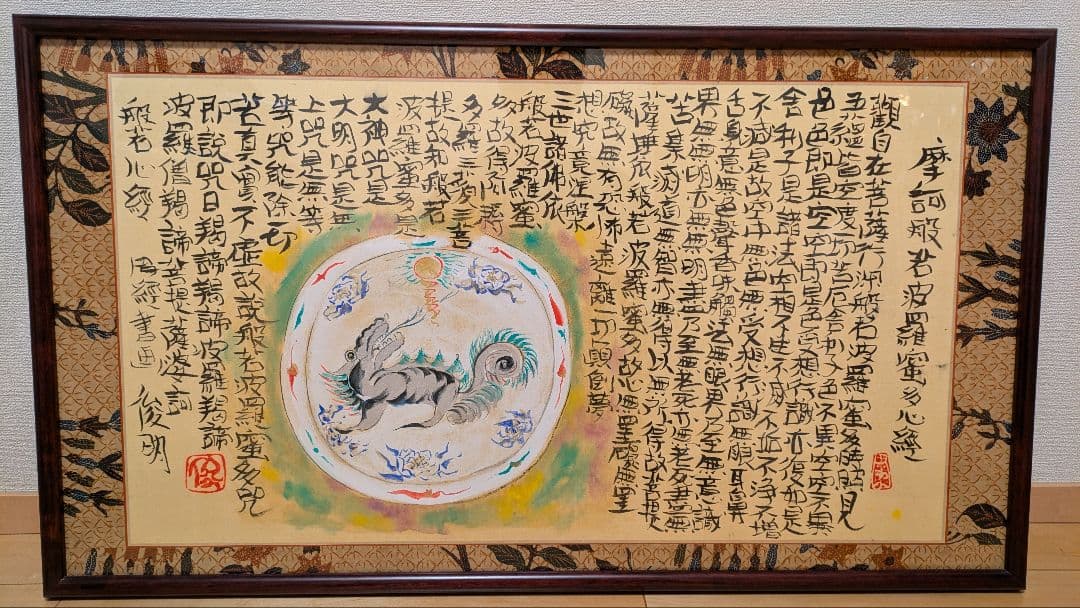 摩訶般若波羅蜜多心經
觀自在菩薩行深般若波羅蜜多時照見
五蘊皆空度一切苦厄舍利子色不異空空不異
色色即是空空即是色受想行識亦復如是
舍利子是諸法空相不生不滅不垢不淨不增
不減是故空中無色無受想行識無眼耳鼻
舌身意無色聲香味觸法無眼界乃至無意識
界無無明亦無無明盡乃至無老死亦無老死盡無
苦集滅道無智亦無得以無所得故菩提
薩埵依般若波羅蜜多故心無罣礙無罣
礙故無有恐怖遠離一切顛倒夢
想究竟涅槃
三世諸佛依
般若波羅蜜
多故得阿耨
多羅三藐三菩
提故知般若
波羅蜜多是
大神咒是
大明咒是無
上咒是無等
等咒能除一切
苦真實不虛故說般若波羅蜜多咒
即說咒曰羯諦羯諦波羅羯諦
波羅僧羯諦菩提薩婆訶
般若心經 俊明
俊